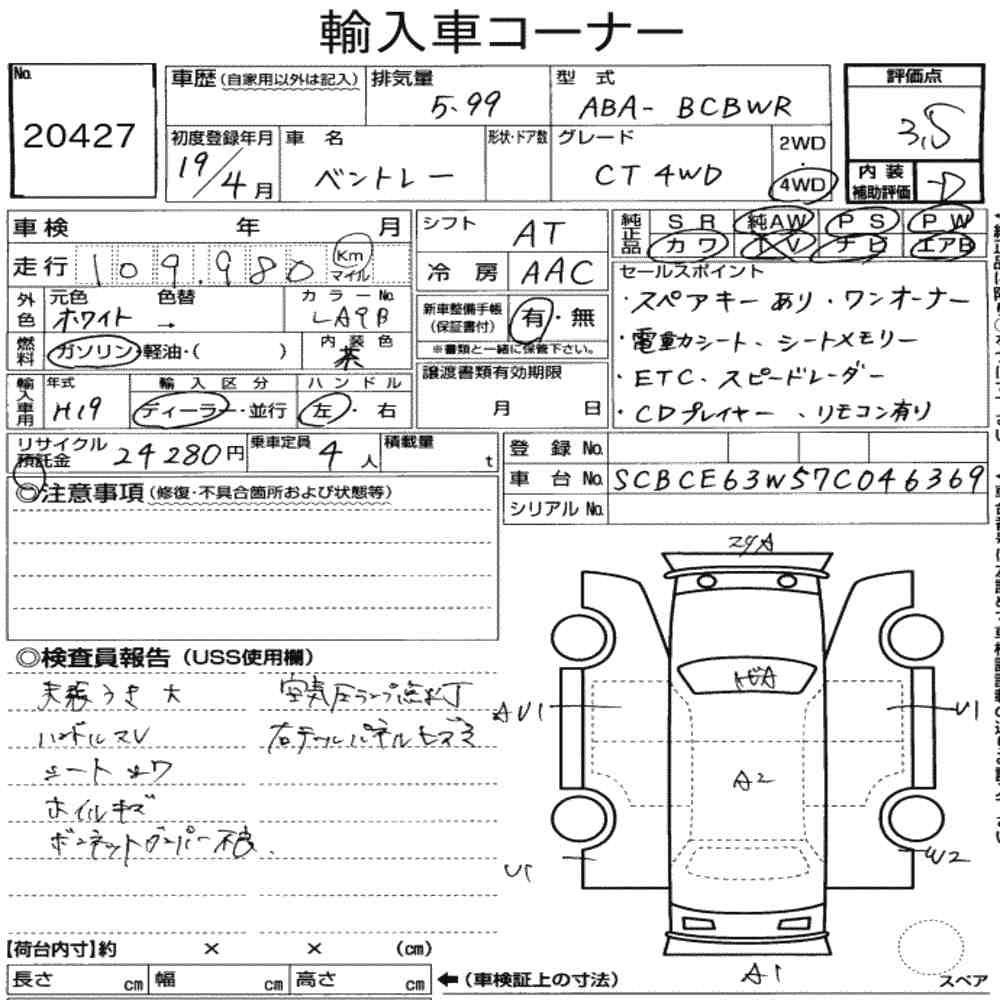 輸入車コーナー
No.
20427
車歴(自家用以外は記入)
排気量
5.99
型 式
ABA- BCBWR
評価点
3.5
初度登録年月
19/4月
車 名
ベントレー
形状・ドア数
グレード
CT 4WD
2WD
・
4WD
内 装
補助評価
D
車検 年 月
走行 109,980 Km
マイル
シフト
AT
冷 房
AAC
純正品
SR 純AW PS PW
カワ TV ナビ エアB
外色
元色 色替
ホワイト →
カラーNo.
LA9B
新車整備手帳
(保証書付)
有・無
※書類と一緒に保管下さい。
セールスポイント
・スペアキーあり・ワンオーナー
・電動シート、シートメモリー
・ETC、スピードレーダー
・CDプレイヤー、リモコン有り
燃料
ガソリン・軽油・( )
内装色
茶
譲渡書類有効期限
月 日
輸入車用
年式
H19
輸入区分
ディーラー・並行
ハンドル
左・右
リサイクル
預託金
24280円
乗車定員
4人
積載量
t
登 録 No.
車 台 No. SCBCE63W57C046369
シリアル No.
◎注意事項(修復・不具合箇所および状態等)
◎検査員報告(USS使用欄)
天張うき大
空気圧ランプ点灯
ハンドルスレ
右テールパネルキズ
シートシワ
ホイルキズ
ボンネットダンパー不良
AU1
U1
トビA
A2
U1
W2
A1
スペア
【荷台内寸】約 × × (cm)
長さ cm 幅 cm 高さ cm
←(車検証上の寸法)